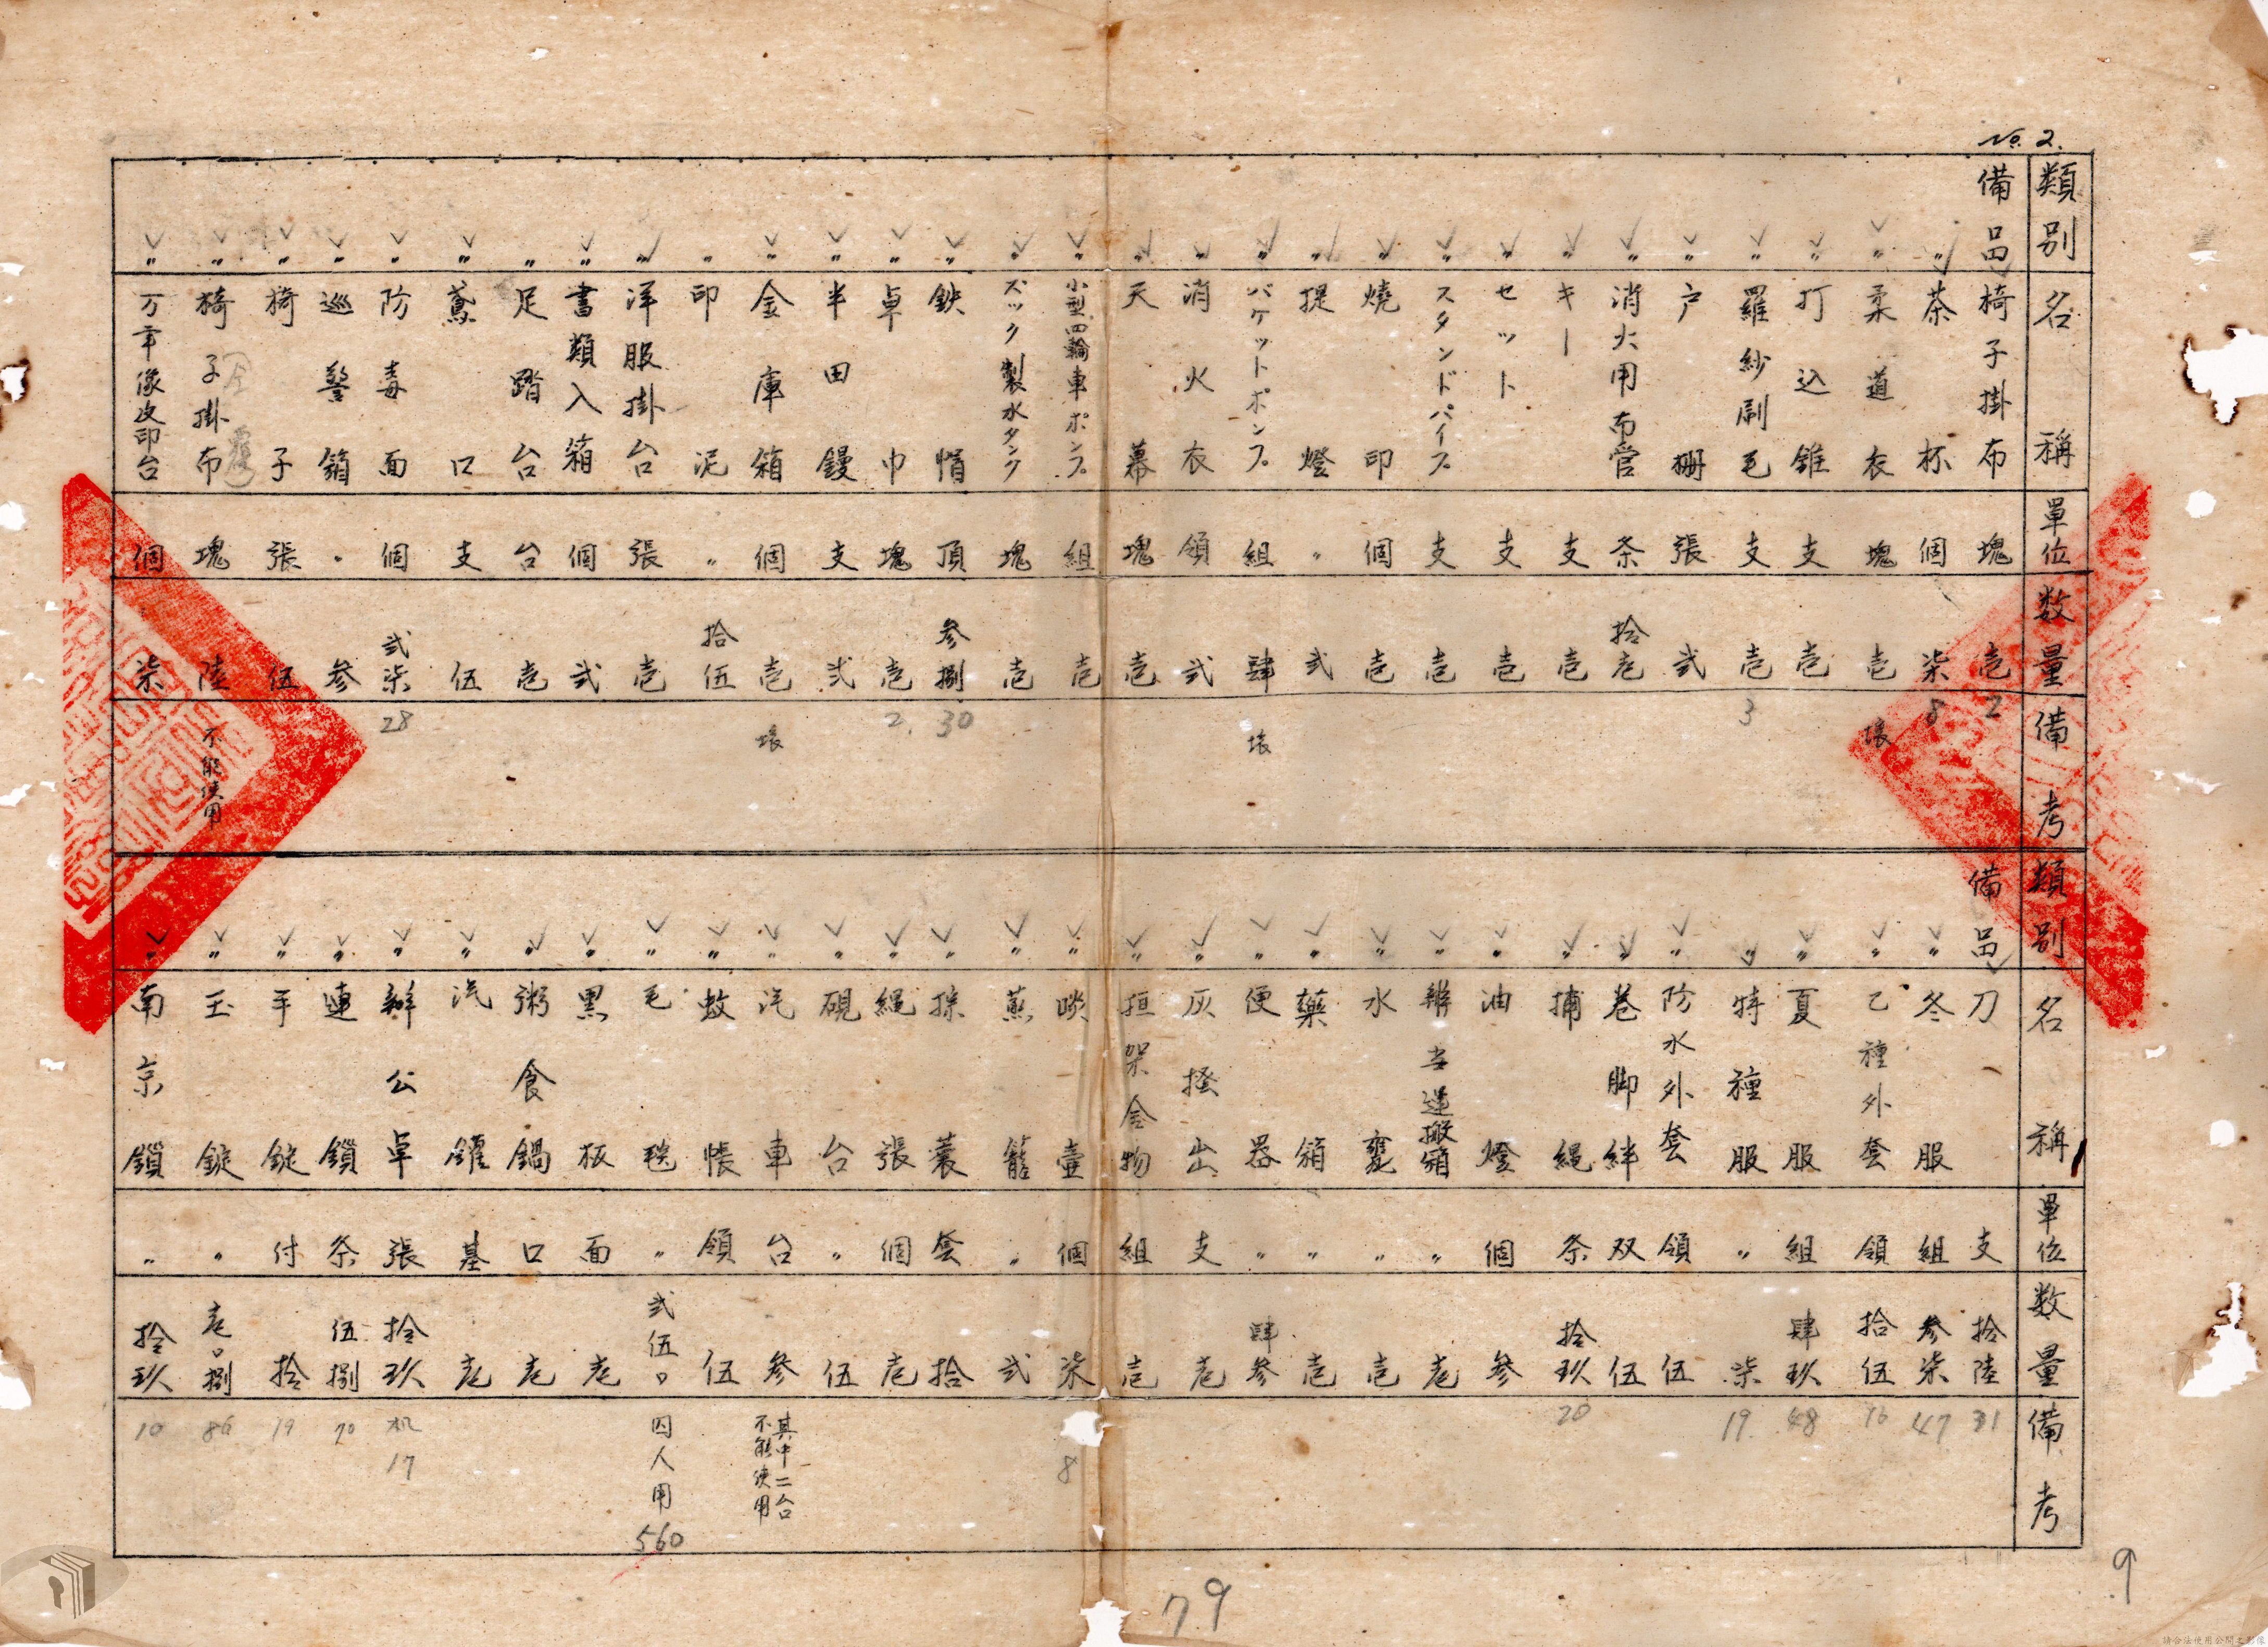 No. 2.
類別 名稱 單位 数量 備考
備品 椅子掛布 塊 壱 2
〃 茶杯 個 柒 8
〃 柔道衣 塊 壱 壊
〃 打込錐 支 壱
〃 羅紗刷毛 支 壱 3
〃 戸柵 張 弐
〃 消火用布管 条 拾壱
〃 キー 支 壱
〃 セット 支 壱
〃 スタンドパイプ 支 壱
〃 燒印 個 壱
〃 提燈 〃 弐
〃 バケットポンプ 組 肆 壊
〃 消火衣 領 弐
〃 天幕 塊 壱
〃 小型四輪車ポンプ 組 壱
〃 ズック製水タンク 塊 壱
〃 鉄帽 頂 参捌 30
〃 卓巾 塊 壱 2
〃 半田鏝 支 弐
〃 金庫箱 個 壱 壊
〃 印泥 〃 拾伍
〃 洋服掛台 張 壱
〃 書類入箱 個 弐
〃 足踏台 台 壱
〃 鳶口 支 伍
〃 防毒面 個 弐柒 28
〃 巡警箱 〃 参
〃 椅子 張 伍
〃 椅子掛布 塊 陸 不能使用
〃 万年像皮印台 個 柒
類別 名稱 單位 数量 備考
備品 刀 支 拾陸 31
〃 冬服 組 参柒 47
〃 乙種外套 領 拾伍 16
〃 夏服 組 肆玖 48
〃 特種服 〃 柒 19
〃 防水外套 領 伍
〃 巻脚絆 双 伍
〃 捕縄 条 拾玖 20
〃 油燈 個 参
〃 辨当運搬箱 〃 壱
〃 水甕 〃 壱
〃 藥箱 〃 壱
〃 便器 〃 肆参
〃 灰掻出 支 壱
〃 担架金物 組 壱
〃 啖壷 個 柒 8
〃 蒸籠 〃 弐
〃 棕蓑 套 拾
〃 縄張 個 壱
〃 硯台 〃 伍
〃 汽車 台 参 其中二台不能使用
〃 蚊帳 領 伍
〃 毛毯 〃 弐伍〇 囚人用 560
〃 黒板 面 壱
〃 粥食鍋 口 壱
〃 汽鑵 基 壱
〃 辦公卓 張 拾玖 机 17
〃 連鎖 条 伍捌 70
〃 手錠 付 拾 19
〃 玉錠 〃 壱〇捌 86
〃 南京鎖 〃 拾玖 10
79
9